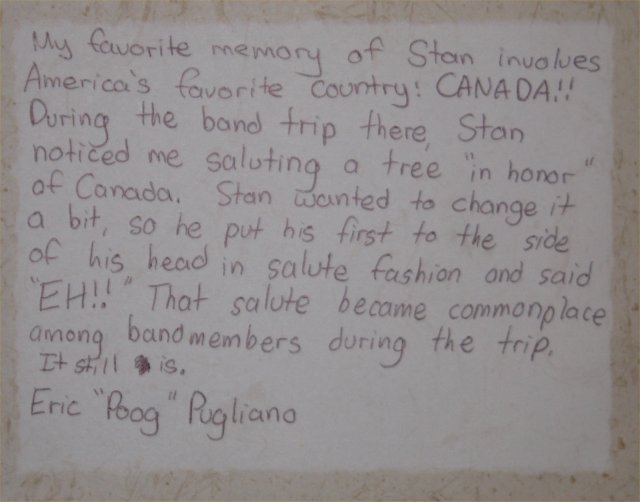 My favorite memory of Stan involves
America's favorite country: CANADA!!
During the band trip there, Stan
noticed me saluting a tree "in honor"
of Canada. Stan wanted to change it
a bit, so he put his first to the side
of his head in salute fashion and said
"EH!!" That salute became commonplace
among bandmembers during the trip.
It still is.
Eric "Poog" Pugliano